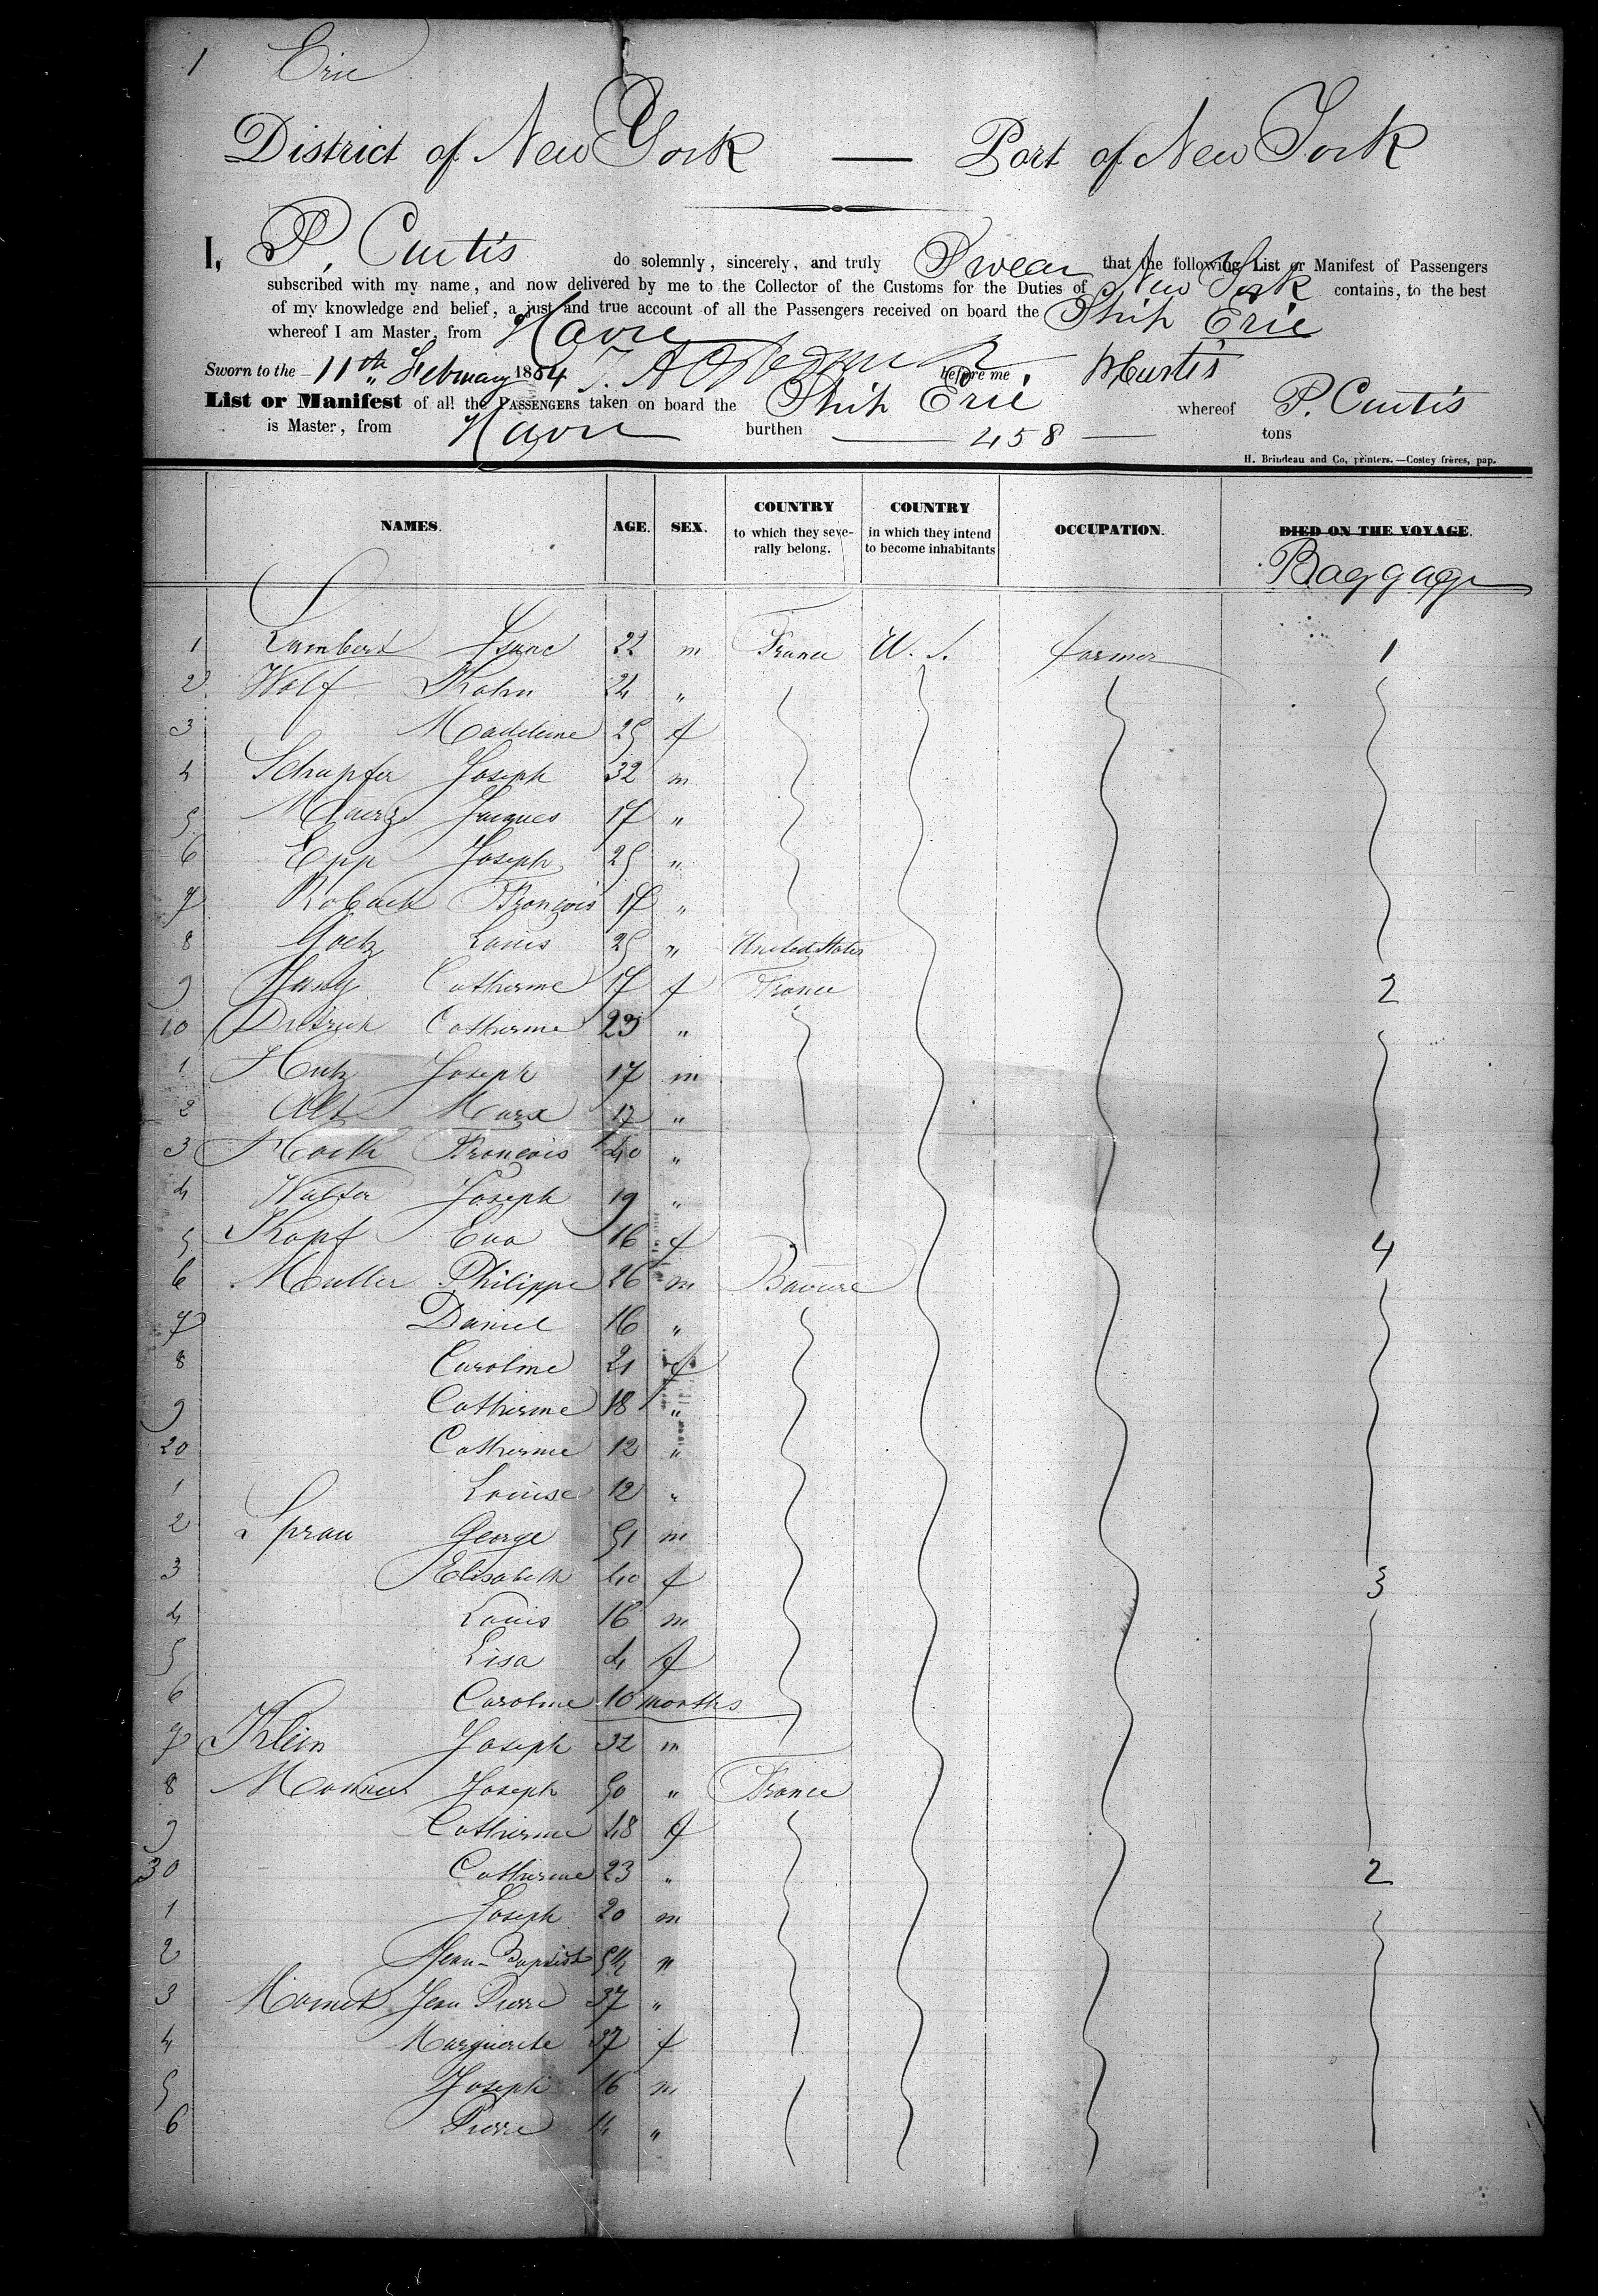 1 Erie
District of New York — Port of New York
I, P. Curtis do solemnly, sincerely, and truly Swear that the following List or Manifest of Passengers
subscribed with my name, and now delivered by me to the Collector of the Customs for the Duties of New York contains, to the best
of my knowledge and belief, a just and true account of all the Passengers received on board the Ship Erie
whereof I am Master, from Havre
Sworn to the 11th February 1854 before me P Curtis
List or Manifest of all the PASSENGERS taken on board the Ship Erie whereof P. Curtis
is Master, from Havre burthen 458 tons
H. Brindeau and Co, printers.—Costey frères, pap.
NAMES. AGE. SEX. COUNTRY to which they seve-rally belong. COUNTRY in which they intend to become inhabitants OCCUPATION. DIED ON THE VOYAGE.
Baggage
1 Lambert Isaac 22 m France U. S. farmer 1
2 Wolf Kahn 24 "
3 Madeleine 25 f
4 Schupfer Joseph 32 m
5 Jacques 17 "
6 Epp Joseph 25 "
7 François 17 "
8 Goetz Louis 25 " United States
9 Catherine 17 f France 2
10 Dietrich Catherine 23 "
1 Hutz Joseph 17 m
2 Alt Marx 17 "
3 François 40 "
4 Walter Joseph 19 "
5 Kopf Eva 16 f 4
6 Muller Philippe 26 m Baviere
7 Daniel 16 "
8 Caroline 21 f
9 Catherine 18 "
20 Catherine 12 "
1 Louise 12 "
2 Sprau George 51 m
3 Elisabeth 40 f 3
4 Louis 16 m
5 Lisa 4 f
6 Caroline 10 months
7 Klein Joseph 32 m
8 Joseph 50 " France
9 Catherine 48 f
30 Catherine 23 " 2
1 Joseph 20 m
2 Jean-Baptist "
3 Jean Pierre 37 "
4 Marguerite 37 f
5 Joseph 16 m
6 Pierre "